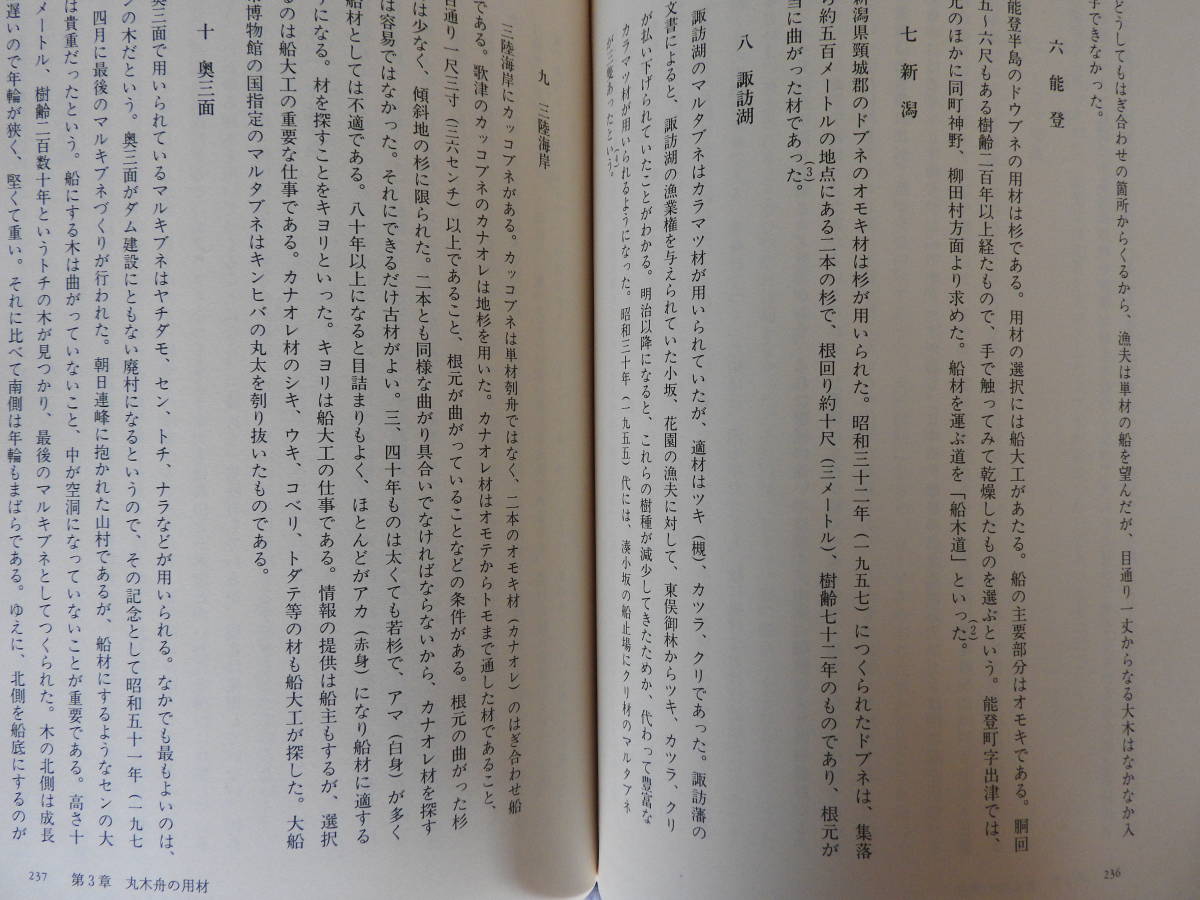 どうしてもはぎ合わせの箇所からくるから、漁夫は単材の船を望んだが、目通り一丈からなる大木はなかなか入
手できなかった。
六 能登
能登半島のドウブネの用材は杉である。用材の選択には船大工があたる。船の主要部分はオモキである。胴回
五〜六尺もある樹齢二百年以上経たもので、手で触ってみて乾燥したものを選ぶという。能登町字出津では、
元のほかに同町神野、柳田村方面より求めた。船材を運ぶ道を「船木道」といった。(2)
七 新潟
新潟県頸城郡のドブネのオモキ材は杉が用いられた。昭和三十二年(一九五七)につくられたドブネは、集落
ら約五百メートルの地点にある二本の杉で、根回り約十尺(三メートル)、樹齢七十二年のものであり、根元が
当に曲がった材であった。(3)
八 諏訪湖
諏訪湖のマルタブネはカラマツ材が用いられていたが、適材はツキ(槻)、カツラ、クリであった。諏訪藩の
文書によると、諏訪湖の漁業権を与えられていた小坂、花園の漁夫に対して、東俣御林からツキ、カツラ、クリ
が払い下げられていたことがわかる。明治以降になると、これらの樹種が減少してきたためか、代わって豊富な
カラマツ材が用いられるようになった。昭和三十年(一九五五)代には、湊小坂の船止場にクリ材のマルタブネ
が三艘あったという。(4)
236
九 三陸海岸
三陸海岸にカッコブネがある。カッコブネは単材刳舟ではなく、二本のオモキ材(カナオレ)のはぎ合わせ船
である。歌津のカッコブネのカナオレは地杉を用いた。カナオレ材はオモテからトモまで通した材であること、
目通り一尺三寸(三六センチ)以上であること、根元が曲がっていることなどの条件がある。根元の曲がった杉
は少なく、傾斜地の杉に限られた。二本とも同様な曲がり具合いでなければならないから、カナオレ材を探す
は容易ではなかった。それにできるだけ古材がよい。三、四十年ものは太くても若杉で、アマ(白身)が多く
船材としては不適である。八十年以上になると目詰まりもよく、ほとんどがアカ(赤身)になり船材に適する
りになる。材を探すことをキヨリといった。キヨリは船大工の仕事である。情報の提供は船主もするが、選択
るのは船大工の重要な仕事である。カナオレ材のシキ、ウキ、コベリ、トダテ等の材も船大工が探した。大船
市博物館の国指定のマルタブネはキンヒバの丸太を刳り抜いたものである。
十 奥三面
奥三面で用いられているマルキブネはヤチダモ、セン、トチ、ナラなどが用いられる。なかでも最もよいのは、
ンの木だという。奥三面がダム建設にともない廃村になるというので、その記念として昭和五十一年(一九七
四月に最後のマルキブネづくりが行われた。朝日連峰に抱かれた山村であるが、船材にするようなセンの大
は貴重だったという。船にする木は曲がっていないこと、中が空洞になっていないことが重要である。高さ十
メートル、樹齢二百数十年というトチの木が見つかり、最後のマルキブネとしてつくられた。木の北側は成長
遅いので年輪が狭く、堅くて重い。それに比べて南側は年輪もまばらである。ゆえに、北側を船底にするのが
237 第3章 丸木舟の用材